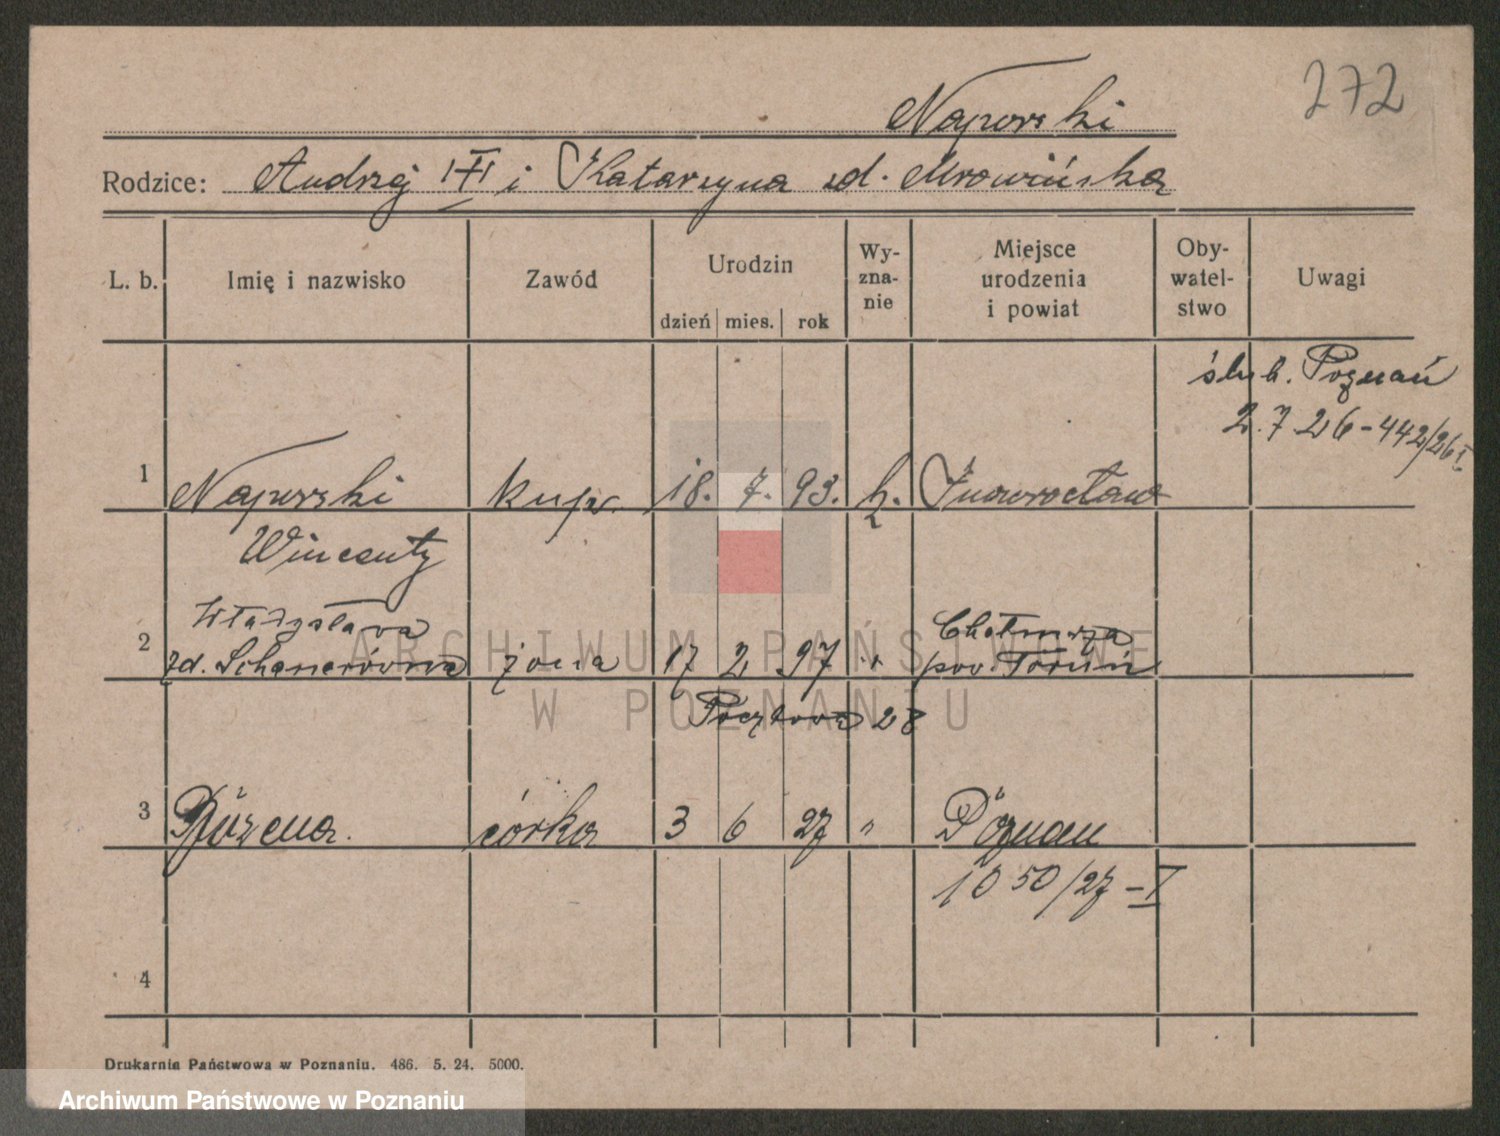 272
Napierski
Rodzice: Andrzej i Katarzyna zd. Mrowińska
L. b. Imię i nazwisko Zawód Urodzin dzień mies. rok Wy-zna-nie Miejsce urodzenia i powiat Oby-watel-stwo Uwagi
ślub. Poznań
2.7.26-442/26 I.
1 kup. 18. 7. 93. k. Inowrocław
Wincenty
Władysława Chełmża
2 zd. żona 17 2 97 " pow. Toruń
Pocztowa 28
3 Bożena. córka 3 6 27 " Poznań
1050/27-I
4
ARCHIWUM PAŃSTWOWE
W POZNANIU
Drukarnia Państwowa w Poznaniu. 486. 5. 24. 5000.
Archiwum Państwowe w Poznaniu